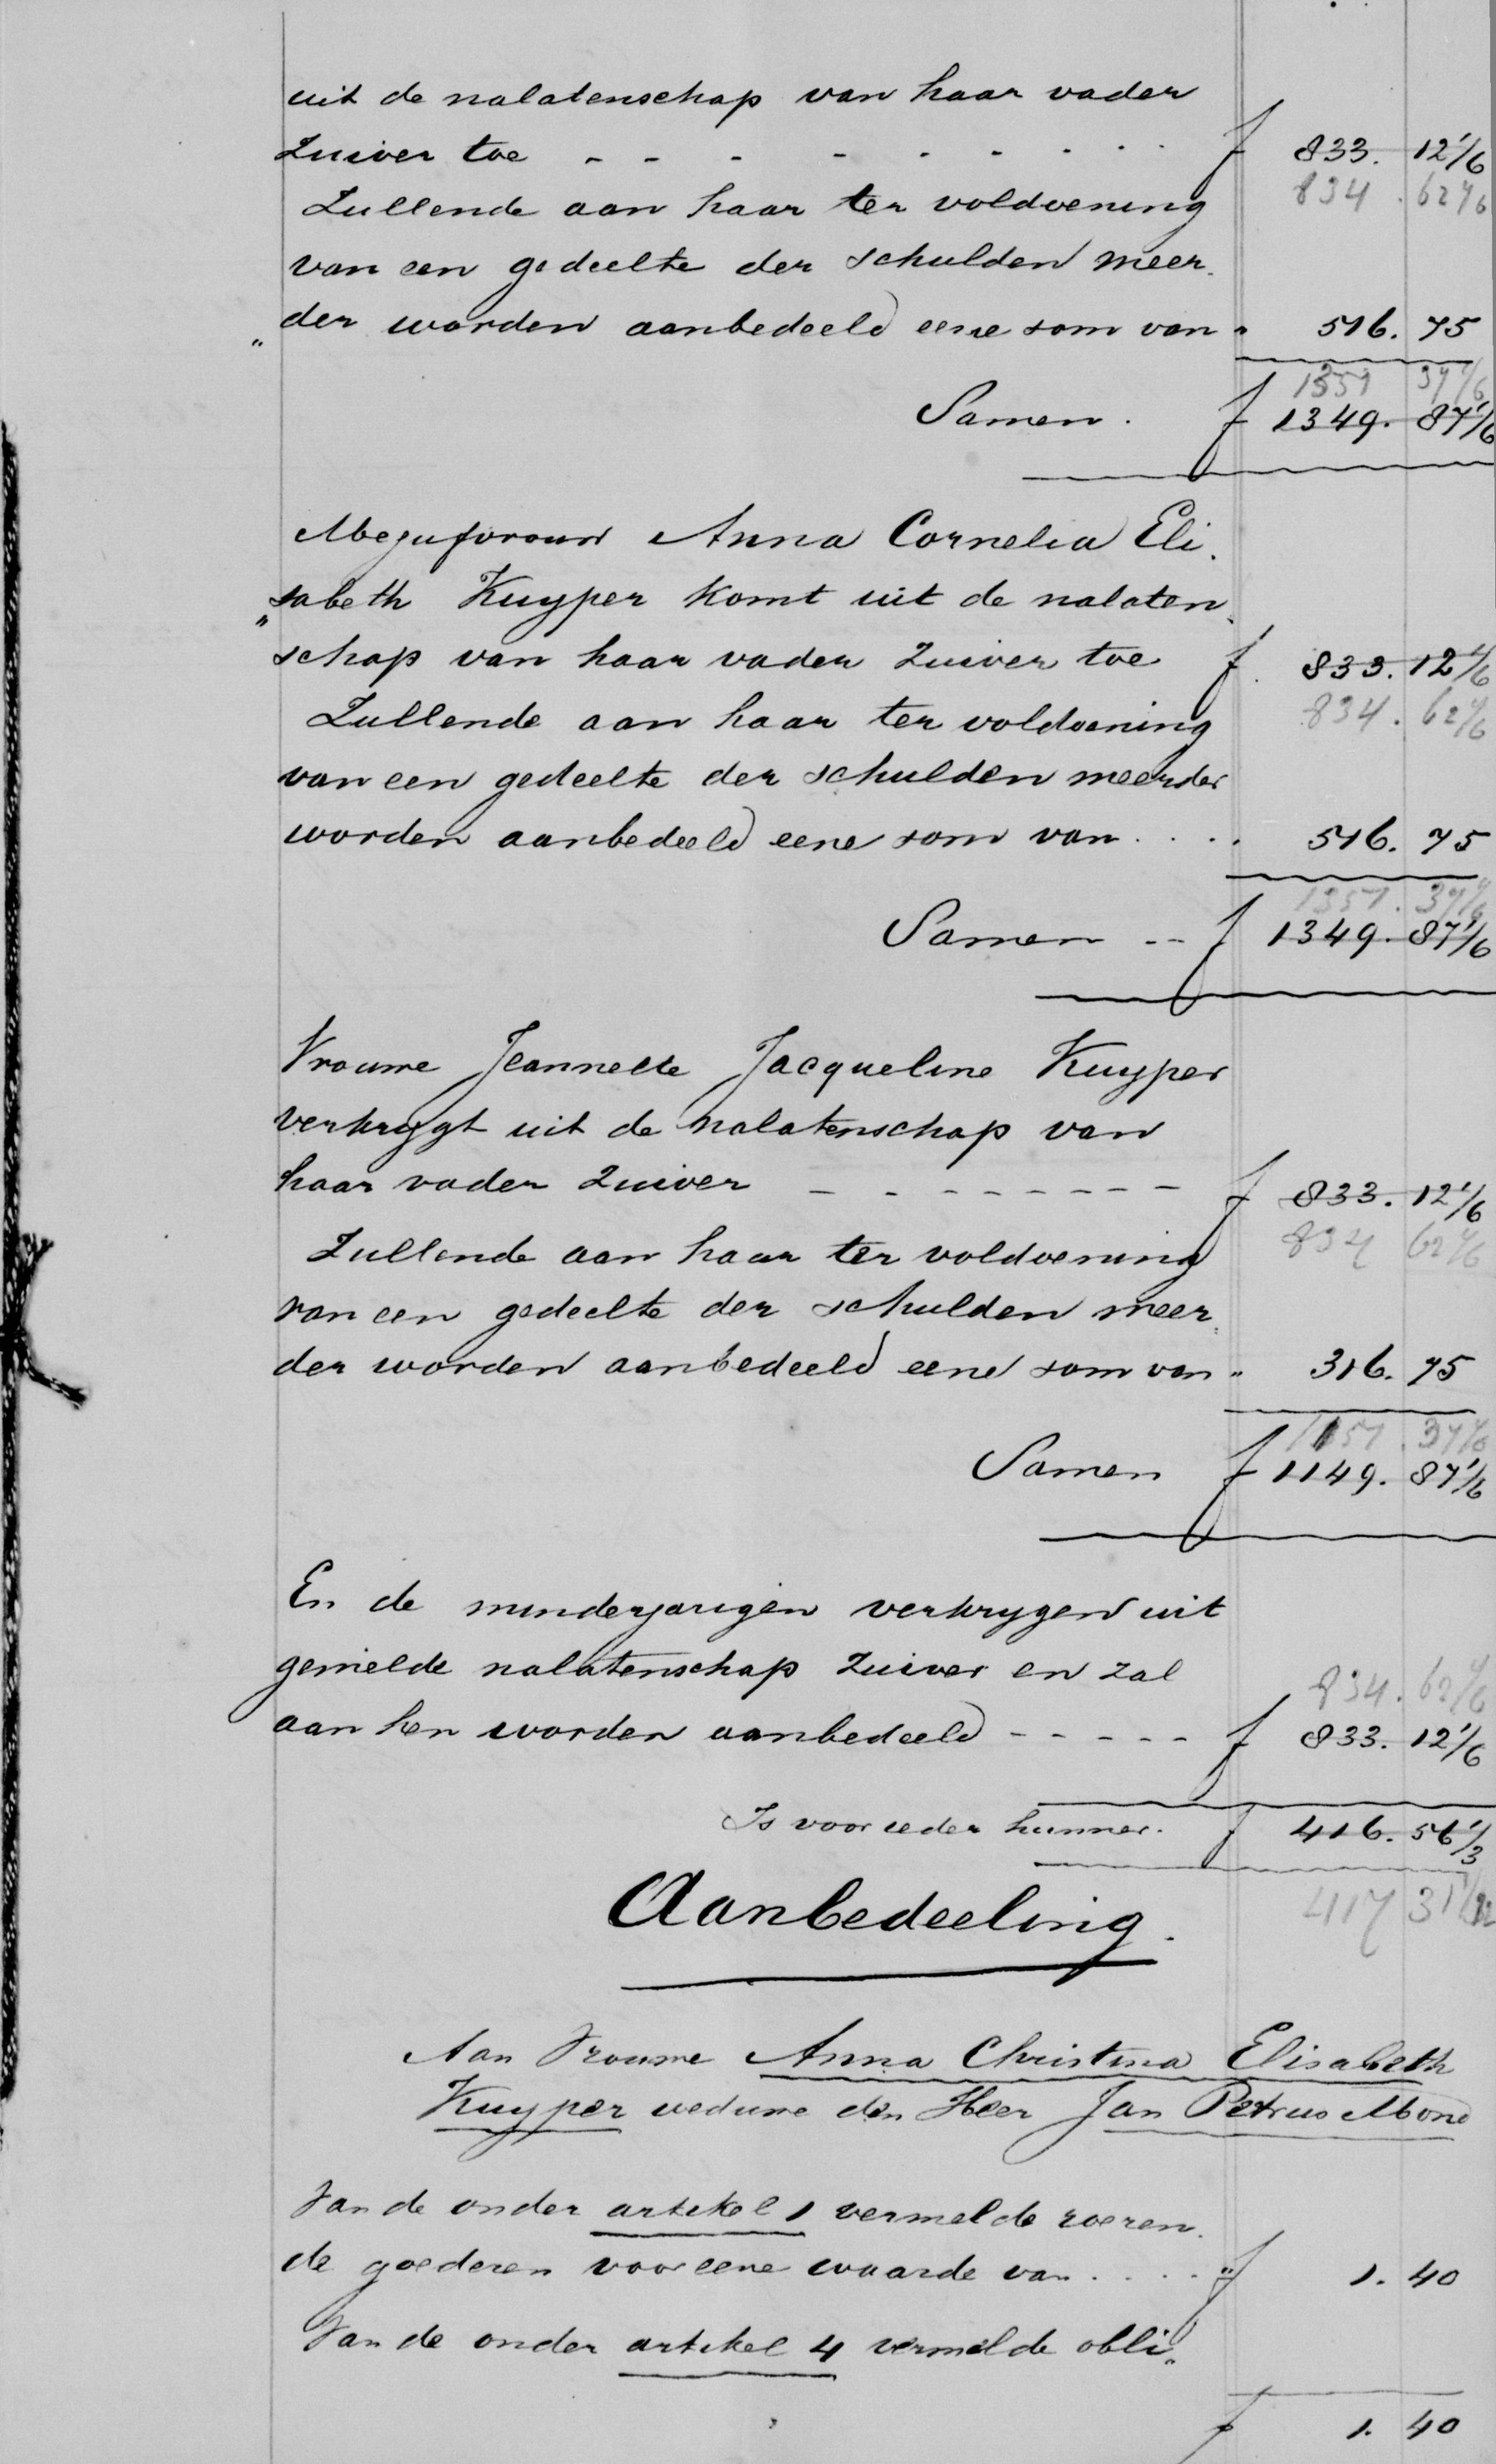 uit de nalatenschap van haar vader
Zuiver toe - - - - - - - - - f 833. 12 1/6
834. 62 4/6
Zullende aan haar ter voldoening
van een gedeelte der schulden meer„
der worden aanbedeeld eene som van „ 516. 75
1351 37 4/6
Samen. f 1349. 87 1/6
Mejufvrouw Anna Cornelia Eli„
„sabeth Kuyper komt uit de nalaten„
schap van haar vader zuiver toe f. 833. 12 1/6
834. 62 4/6
Zullende aan haar ter voldoening
van een gedeelte der schulden meerder
worden aanbedeeld eene som van . . . . 516. 75
1351. 37 4/6
Samen -- f 1349. 87 1/6
Vrouwe Jeannette Jacqueline Kuyper
verkrygt uit de nalatenschap van
haar vader zuiver - - - - - - - - f 833. 12 1/6
834 62 4/6
Zullende aan haar ter voldoening
van een gedeelte der schulden meer„
der worden aanbedeeld eene som van „ 316. 75
1151. 37 4/6
Samen f 1149. 87 1/6
En de minderjarigen verkrygen uit
gemelde nalatenschap zuiver en zal
834. 62 4/6
aan hen worden aanbedeeld - - - - - f 833. 12 1/6
Is voor ieder hunner. f 416. 56 1/3
417 31
Aanbedeeling.
Aan Vrouwe Anna Christina Elisabeth
Kuyper weduwe den Heer Jan Petrus Mone
Van de onder artikel 1 vermelde roeren„
de goederen voor eene waarde van . . . . „ f 1. 40
Van de onder artikel 4 vermelde obli„
f 1. 40